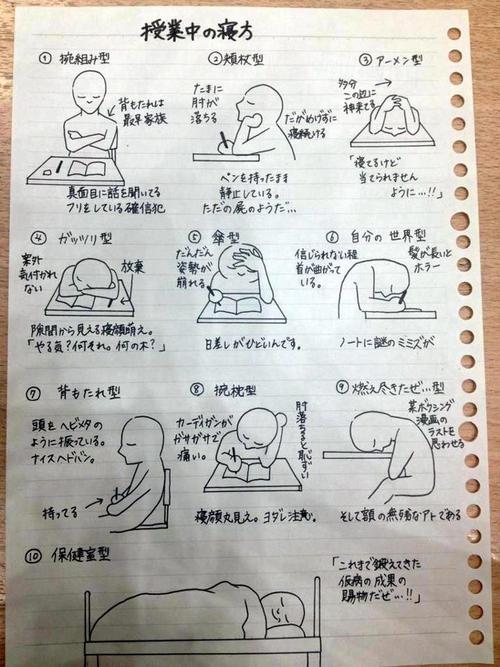 授業中の寝方
① 腕組み型
背もたれは
最早家族
真面目に話を聞いてる
フリをしている確信犯
② 頬杖型
たまに
肘が
落ちる
だがめげずに
寝続ける
ペンを持ったまま
静止している。
ただの屍のようだ…
③ アーメン型
多分
この辺に
神来てる
「寝てるけど
当てられません
ように…!!」
④ ガッツリ型
案外
気付かれ
ない
放棄
隙間から見える寝顔萌え。
「やる気?何それ。何の木?」
⑤ 傘型
だんだん
姿勢が
崩れる
日差しがひどいんです。
⑥ 自分の世界型
信じられない程
首が曲がって
いる。
髪が長いと
ホラー
ノートに謎のミミズが
⑦ 背もたれ型
頭をヘビメタの
ように振っている。
ナイスヘドバン。
持ってる
⑧ 腕枕型
カーディガンが
ガサガサで
痛い。
肘落ちると恥ずい
寝顔丸見え。ヨダレ注意。
⑨ 燃え尽きたぜ…型
某ボクシング
漫画の
ラストを
思わせる
そして額の無残なアトである
⑩ 保健室型
「これまで鍛えてきた
仮病の成果の
賜物だぜ…!!」